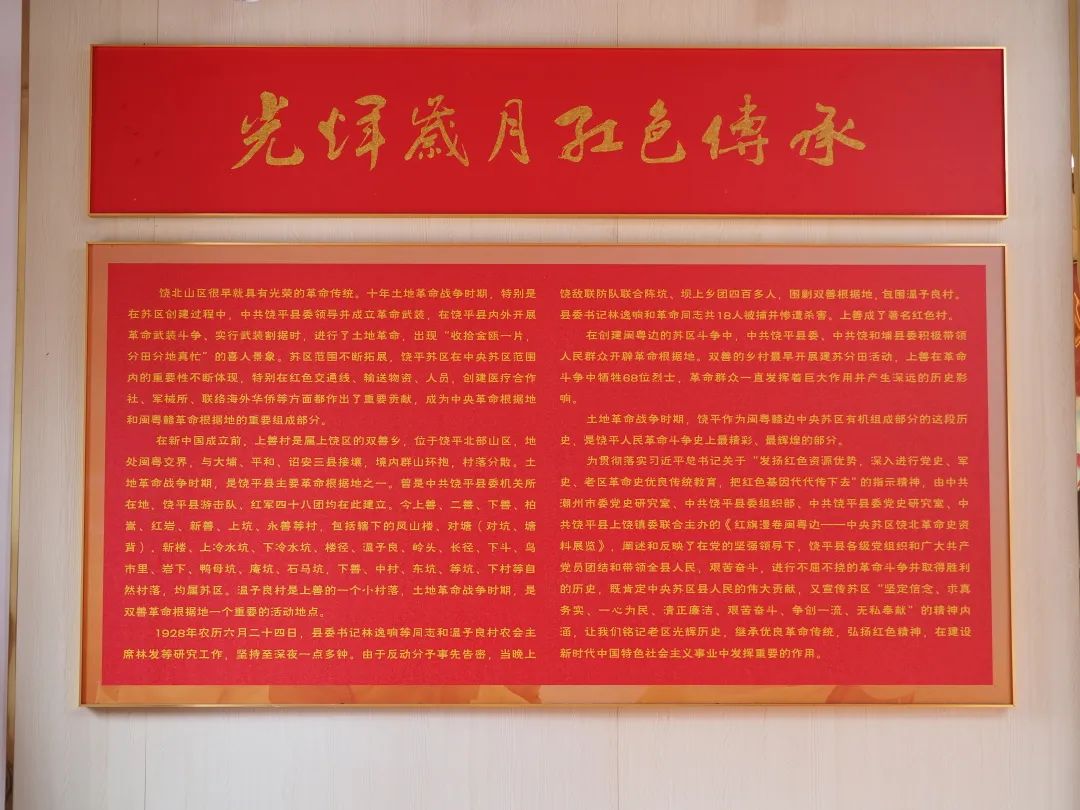 光辉歲月红色傳承
饶北山区很早就具有光荣的革命传统。十年土地革命战争时期，特别是
在苏区创建过程中，中共饶平县委领导并成立革命武装，在饶平县内外开展
革命武装斗争、实行武装割据时，进行了土地革命，出现“收拾金瓯一片，
分田分地真忙”的喜人景象。苏区范围不断拓展，饶平苏区在中央苏区范围
内的重要性不断体现，特别在红色交通线、输送物资、人员，创建医疗合作
社、军械所、联络海外华侨等方面都作出了重要贡献，成为中央革命根据地
和闽粤赣革命根据地的重要组成部分。
在新中国成立前，上善村是属上饶区的双善乡，位于饶平北部山区，地
处闽粤交界，与大埔、平和、诏安三县接壤，境内群山环抱，村落分散。土
地革命战争时期，是饶平县主要革命根据地之一。曾是中共饶平县委机关所
在地、饶平县游击队、红军四十八团均在此建立。今上善、二善、下善、柏
嵩、红岩、新善、上坑、永善等村，包括辖下的凤山楼、对塘（对坑、塘
背）、新楼、上冷水坑、下冷水坑、楼径、温予良、岭头、长径、下斗、鸟
市里、岩下、鸭母坑、庵坑、石马坑，下善、中村、东坑、等坑、下村等自
然村落，均属苏区。温予良村是上善的一个小村落，土地革命战争时期，是
双善革命根据地一个重要的活动地点。
1928年农历六月二十四日，县委书记林逸响等同志和温予良村农会主
席林发等研究工作，坚持至深夜一点多钟。由于反动分予事先告密，当晚上
饶敌联防队联合陈坑、坝上乡团四百多人，围剿双善根据地，包围温予良村。
县委书记林逸响和革命同志共18人被捕并惨遭杀害。上善成了著名红色村。
在创建闽粤边的苏区斗争中，中共饶平县委、中共饶和埔县委积极带领
人民群众开辟革命根据地。双善的乡村最早开展建苏分田活动，上善在革命
斗争中牺牲68位烈士，革命群众一直发挥着巨大作用并产生深远的历史影
响。
土地革命战争时期，饶平作为闽粤赣边中央苏区有机组成部分的这段历
史、是饶平人民革命斗争史上最精彩、最辉煌的部分。
为贯彻落实习近平总书记关于“发扬红色资源优势，深入进行党史、军
史、老区革命史优良传统教育，把红色基因代代传下去”的指示精神，由中共
潮州市委党史研究室、中共饶平县委组织部、中共饶平县委党史研究室、中
共饶平县上饶镇委联合主办的《红旗漫卷闽粤边——中央苏区饶北革命史资
料展览》，阐述和反映了在党的坚强领导下，饶平县各级党组织和广大共产
党员团结和带领全县人民，艰苦奋斗，进行不屈不挠的革命斗争并取得胜利
的历史，既肯定中央苏区县人民的伟大贡献，又宣传苏区“坚定信念、求真
务实、一心为民、清正廉洁、艰苦奋斗、争创一流、无私奉献”的精神内
涵，让我们铭记老区光辉历史，继承优良革命传统，弘扬红色精神，在建设
新时代中国特色社会主义事业中发挥重要的作用。